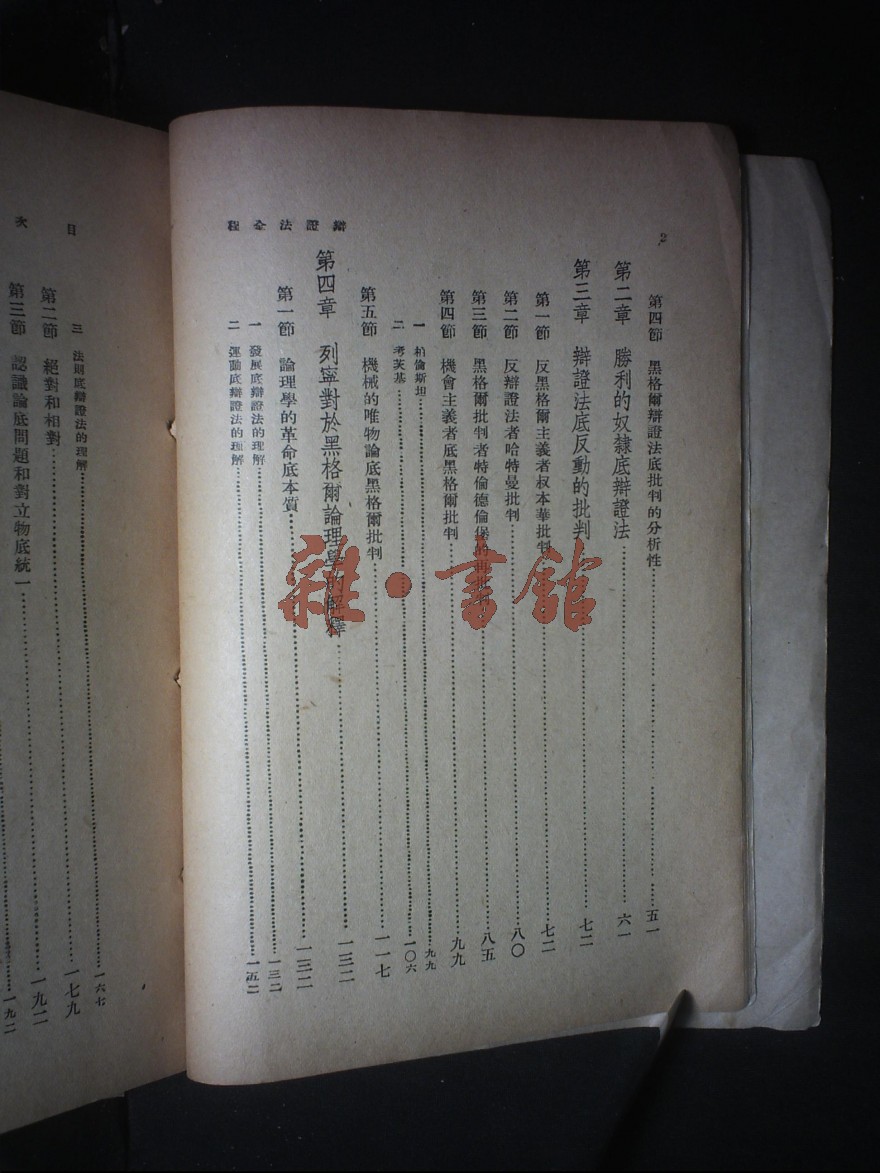 2
辯證法全程
第四節 黑格爾辯證法底批判的分析性……五一
第二章 勝利的奴隸底辯證法……六一
第三章 辯證法底反動的批判……七二
第一節 反黑格爾主義者叔本華批判……七二
第二節 反辯證法者哈特曼批判……八〇
第三節 黑格爾批判者特倫德倫堡的再批判……八五
第四節 機會主義者底黑格爾批判……九九
一 柏倫斯坦……九九
二 考茨基……一〇六
第五節 機械的唯物論底黑格爾批判……一一七
第四章 列寧對於黑格爾論理學的解釋……一三二
第一節 論理學的革命底本質……一三二
一 發展底辯證法的理解……一三二
二 運動底辯證法的理解……一五二
目次
三 法則底辯證法的理解……一六七
第二節 絕對和相對……一七九
第三節 認識論底問題和對立物底統一……一九二
一九二
雜·書館